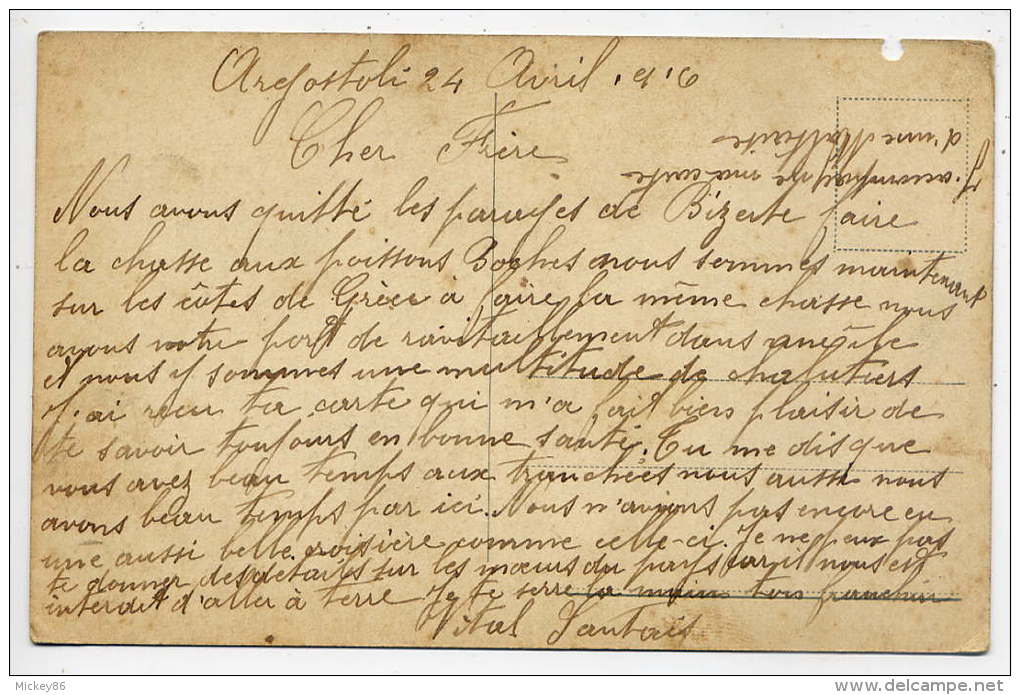 Argostoli 24 Avril 1916
Cher Frère
Nous avons quitté les parages de Bizerte faire
la chasse aux poissons Boches nous sommes maintenant
sur les côtes de Grèce à faire la même chasse nous
avons notre port de ravitaillement dans une île
et nous y sommes une multitude de chalutiers
J'ai reçu ta carte qui m'a fait bien plaisir de
te savoir toujours en bonne santé. Tu me dis que
vous avez beau temps aux tranchées nous aussi nous
avons beau temps par ici. Nous n'avions pas encore eu
une aussi belle croisière comme celle-ci. Je ne peux pas
te donner des détails sur les mœurs du pays car il nous est
interdit d'aller à terre Je te serre la main ton
Vital
d'une Maltaise
Mickey86
delcampe.net